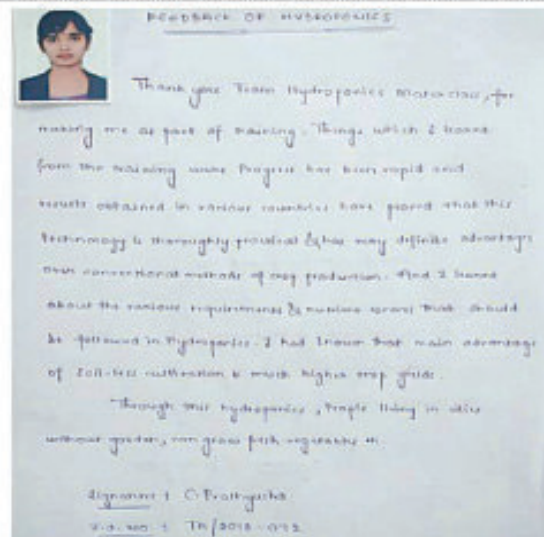 FEEDBACK OF HYDROPONICS
Thank you Team Hydroponics Masterclass, for
making me as part of training. Things which I learnt
from the training were Progress has been rapid and
results obtained in various countries have proved that this
technology is thoroughly practical & has may definite advantages
over conventional methods of crop production. And I learnt
about the various requirements & nutrient that should
be followed in Hydroponics. I had known that main advantage
of Soil-less cultivation is much higher crop yields.
Through this hydroponics, People living in cities
without garden, can grow fresh vegetables
Signature : C. Prathyusha
I.D. NO :